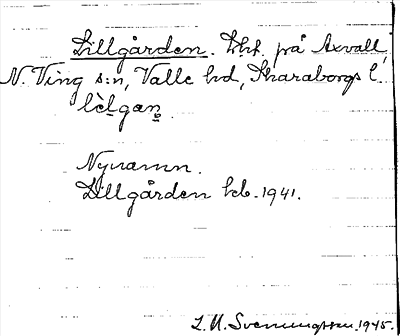 Lillgården. Lht. på Axvall,
N. Ving s:n, Valle hd, Skaraborgs l.
lèlgaṇ
Nynamn.
Lillgården heb. 1941.
L. M. Svenungsson. 1945.